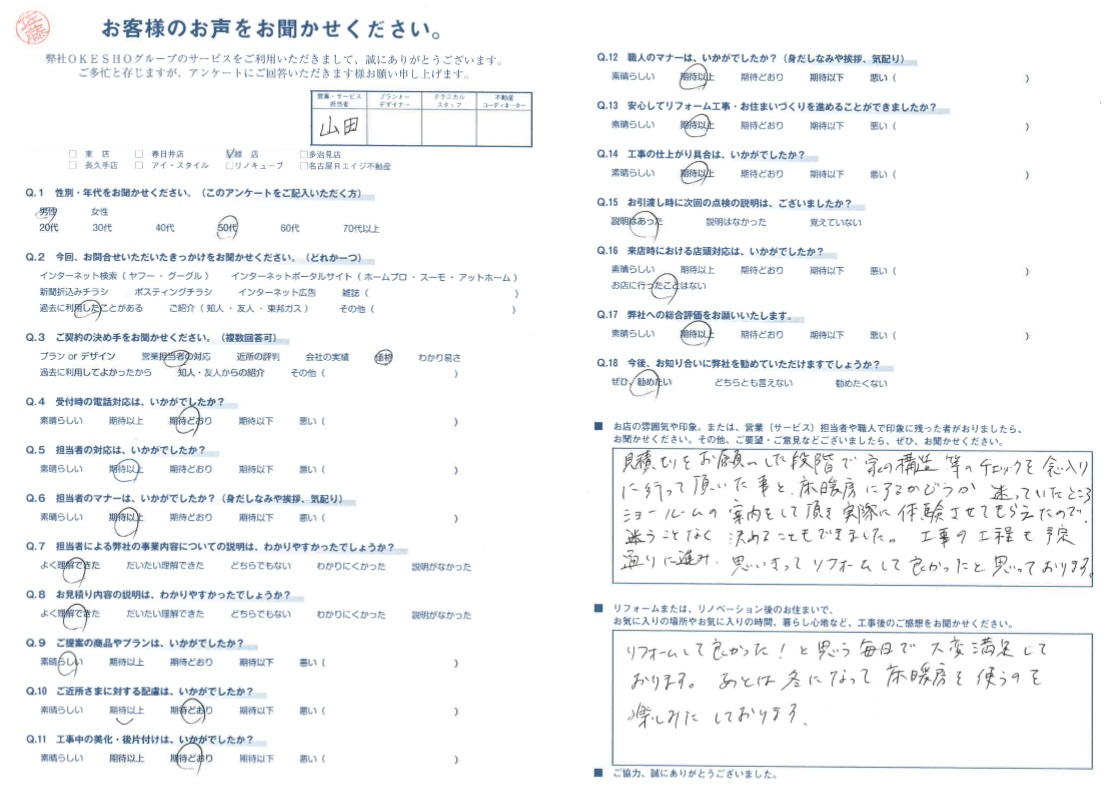 佐藤
お客様のお声をお聞かせください。
弊社OKESHOグループのサービスをご利用いただきまして、誠にありがとうございます。
ご多忙と存じますが、アンケートにご回答いただきます様お願い申し上げます。
営業・サービス担当者 プランナーデザイナー テクニカルスタッフ 不動産コーディネーター
山田
□ 東 店 □ 春日井店 ☑緑 店 □多治見店
□ 長久手店 □ アイ・スタイル □リノキューブ □名古屋Rエイジ不動産
Q.1 性別・年代をお聞かせください。（このアンケートをご記入いただく方）
男性 女性
20代 30代 40代 50代 60代 70代以上
Q.2 今回、お問合せいただいたきっかけをお聞かせください。（どれか一つ）
インターネット検索（ヤフー・グーグル） インターネットポータルサイト（ホームプロ・スーモ・アットホーム）
新聞折込みチラシ ポスティングチラシ インターネット広告 雑誌（ ）
過去に利用したことがある ご紹介（知人・友人・東邦ガス） その他（ ）
Q.3 ご契約の決め手をお聞かせください。（複数回答可）
プラン or デザイン 営業担当者の対応 近所の評判 会社の実績 価格 わかり易さ
過去に利用してよかったから 知人・友人からの紹介 その他（ ）
Q.4 受付時の電話対応は、いかがでしたか？
素晴らしい 期待以上 期待どおり 期待以下 悪い（ ）
Q.5 担当者の対応は、いかがでしたか？
素晴らしい 期待以上 期待どおり 期待以下 悪い（ ）
Q.6 担当者のマナーは、いかがでしたか？（身だしなみや挨拶、気配り）
素晴らしい 期待以上 期待どおり 期待以下 悪い（ ）
Q.7 担当者による弊社の事業内容についての説明は、わかりやすかったでしょうか？
よく理解できた だいたい理解できた どちらでもない わかりにくかった 説明がなかった
Q.8 お見積り内容の説明は、わかりやすかったでしょうか？
よく理解できた だいたい理解できた どちらでもない わかりにくかった 説明がなかった
Q.9 ご提案の商品やプランは、いかがでしたか？
素晴らしい 期待以上 期待どおり 期待以下 悪い（ ）
Q.10 ご近所さまに対する配慮は、いかがでしたか？
素晴らしい 期待以上 期待どおり 期待以下 悪い（ ）
Q.11 工事中の美化・後片付けは、いかがでしたか？
素晴らしい 期待以上 期待どおり 期待以下 悪い（ ）
Q.12 職人のマナーは、いかがでしたか？（身だしなみや挨拶、気配り）
素晴らしい 期待以上 期待どおり 期待以下 悪い（ ）
Q.13 安心してリフォーム工事・お住まいづくりを進めることができましたか？
素晴らしい 期待以上 期待どおり 期待以下 悪い（ ）
Q.14 工事の仕上がり具合は、いかがでしたか？
素晴らしい 期待以上 期待どおり 期待以下 悪い（ ）
Q.15 お引渡し時に次回の点検の説明は、ございましたか？
説明はあった 説明はなかった 覚えていない
Q.16 来店時における店頭対応は、いかがでしたか？
素晴らしい 期待以上 期待どおり 期待以下 悪い（ ）
お店に行ったことはない
Q.17 弊社への総合評価をお願いいたします。
素晴らしい 期待以上 期待どおり 期待以下 悪い（ ）
Q.18 今後、お知り合いに弊社を勧めていただけますでしょうか？
ぜひ、勧めたい どちらとも言えない 勧めたくない
■ お店の雰囲気や印象。または、営業（サービス）担当者や職人で印象に残った者がおりましたら、
お聞かせください。その他、ご要望・ご意見などございましたら、ぜひ、お聞かせください。
見積もりをお願いした段階で家の構造等のチェックを念入り
に行って頂いた事と、床暖房にするかどうか迷っていたところ
ショールームの案内をして頂き実際に体験させてもらえたので、
迷うことなく決めることもできました。工事の工程も予定
通りに進み、思いきってリフォームして良かったと思っております。
■ リフォームまたは、リノベーション後のお住まいで、
お気に入りの場所やお気に入りの時間、暮らし心地など、工事後のご感想をお聞かせください。
リフォームして良かった！と思う毎日で大変満足して
おります。あとは冬になって床暖房を使うのを
楽しみにしております。
■ ご協力、誠にありがとうございました。